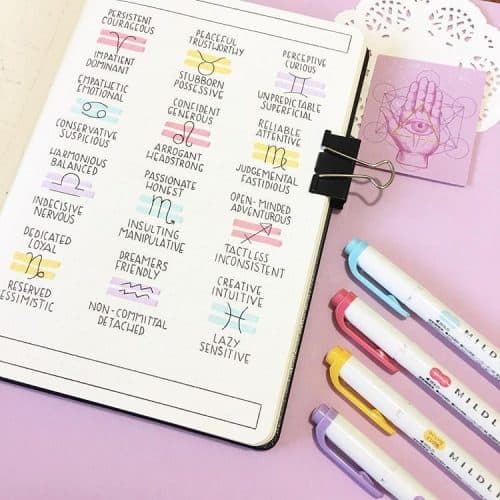 PERSISTENT
COURAGEOUS
IMPATIENT
DOMINANT
PEACEFUL
TRUSTWORTHY
STUBBORN
POSSESSIVE
PERCEPTIVE
CURIOUS
UNPREDICTABLE
SUPERFICIAL
EMPATHETIC
EMOTIONAL
CONSERVATIVE
SUSPICIOUS
CONFIDENT
GENEROUS
ARROGANT
HEADSTRONG
RELIABLE
ATTENTIVE
JUDGEMENTAL
FASTIDIOUS
HARMONIOUS
BALANCED
INDECISIVE
NERVOUS
PASSIONATE
HONEST
INSULTING
MANIPULATIVE
OPEN-MINDED
ADVENTUROUS
TACTLESS
INCONSISTENT
DEDICATED
LOYAL
RESERVED
ESSIMISTIC
DREAMERS
FRIENDLY
NON-COMMITTAL
DETACHED
CREATIVE
INTUITIVE
LAZY
SENSITIVE
MILDL
MILDL
MILDL
MILDL